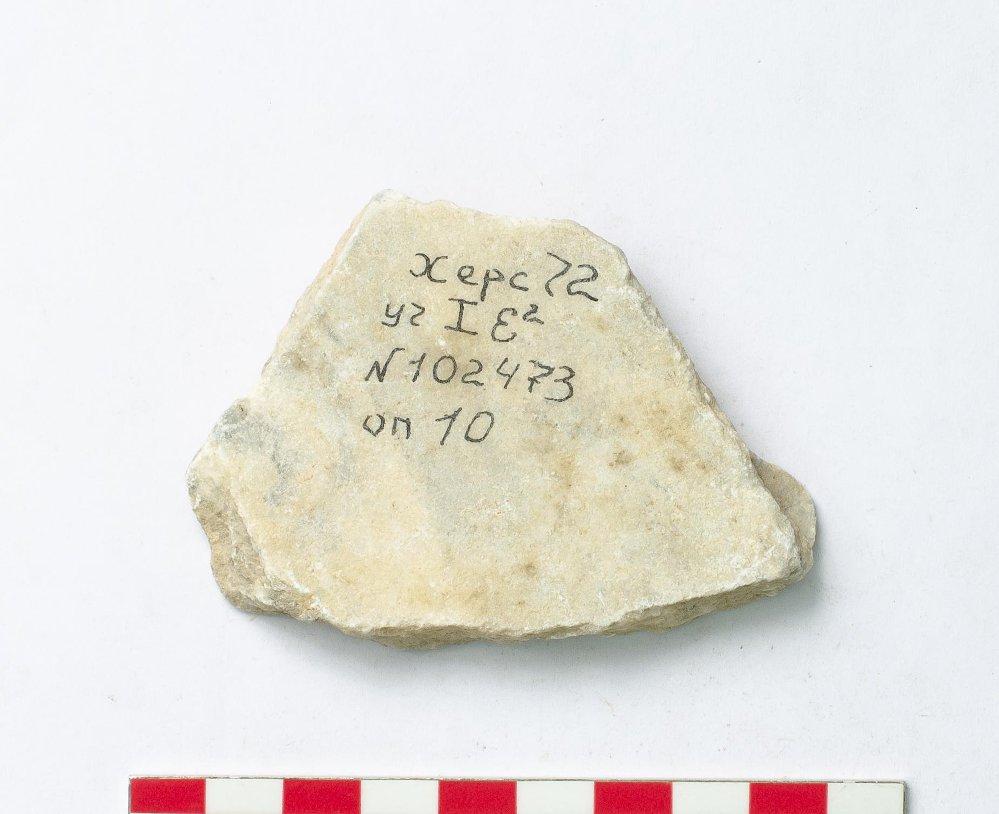 Херс 72
уг I Е²
N102473
оп 10